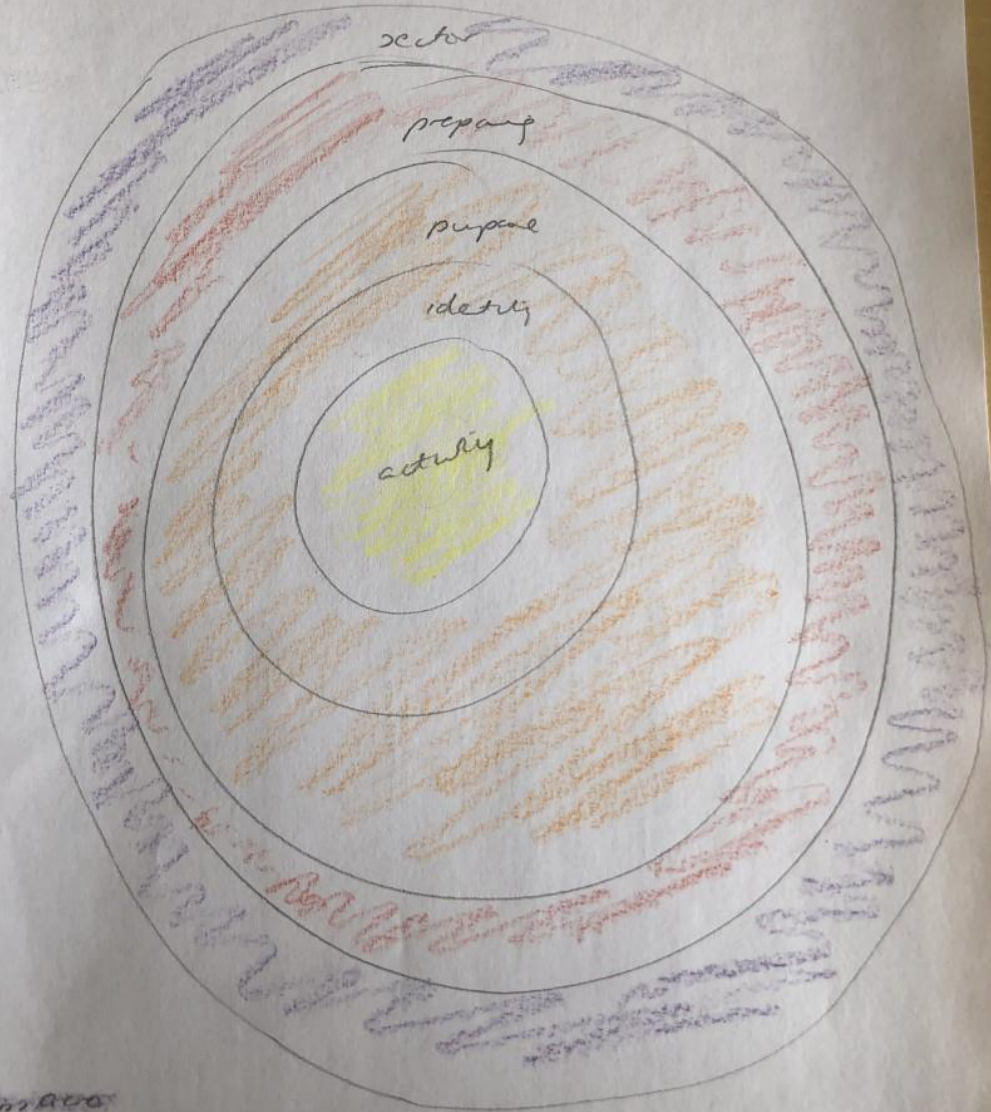 sector
preparing
purpose
identity
activity